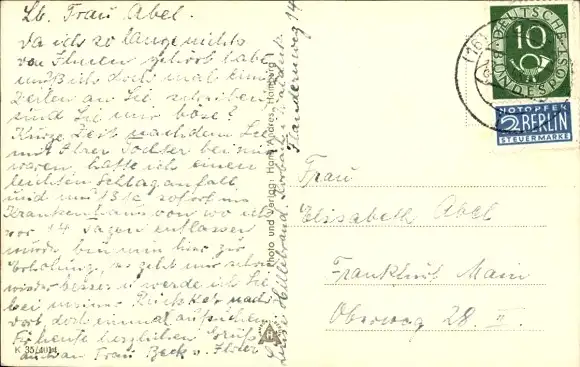 Lb. Frau Abel.
Da ich so lange nichts
von Ihnen gehört habe
muß ich doch mal einige
Zeilen an Sie schreiben
sind Sie mir böse?
Kurze Zeit nachdem Sie
mit Ihrer Tochter bei mir
waren, hatte ich einen
leichten Schlaganfall
und
Krankenhaus von wo ich
vor 14 Tagen entlassen
wurde bin nun hier zur
Erholung, es geht mir schon
wieder besser u. werde ich Sie
bei meiner Rückkehr nach
dort doch einmal aufsuchen
Für heute herzlichen Gruß
auch an Frau Beck u.
Luise Hillebrand
14
Photo und Verlag: Hans Andres, Hamburg
K 35/4014
DEUTSCHE BUNDESPOST
10
NOTOPFER
2 BERLIN
STEUERMARKE
(16)
Frau
Elisabeth Abel
Frankfurt Main
Oberweg 28 II.